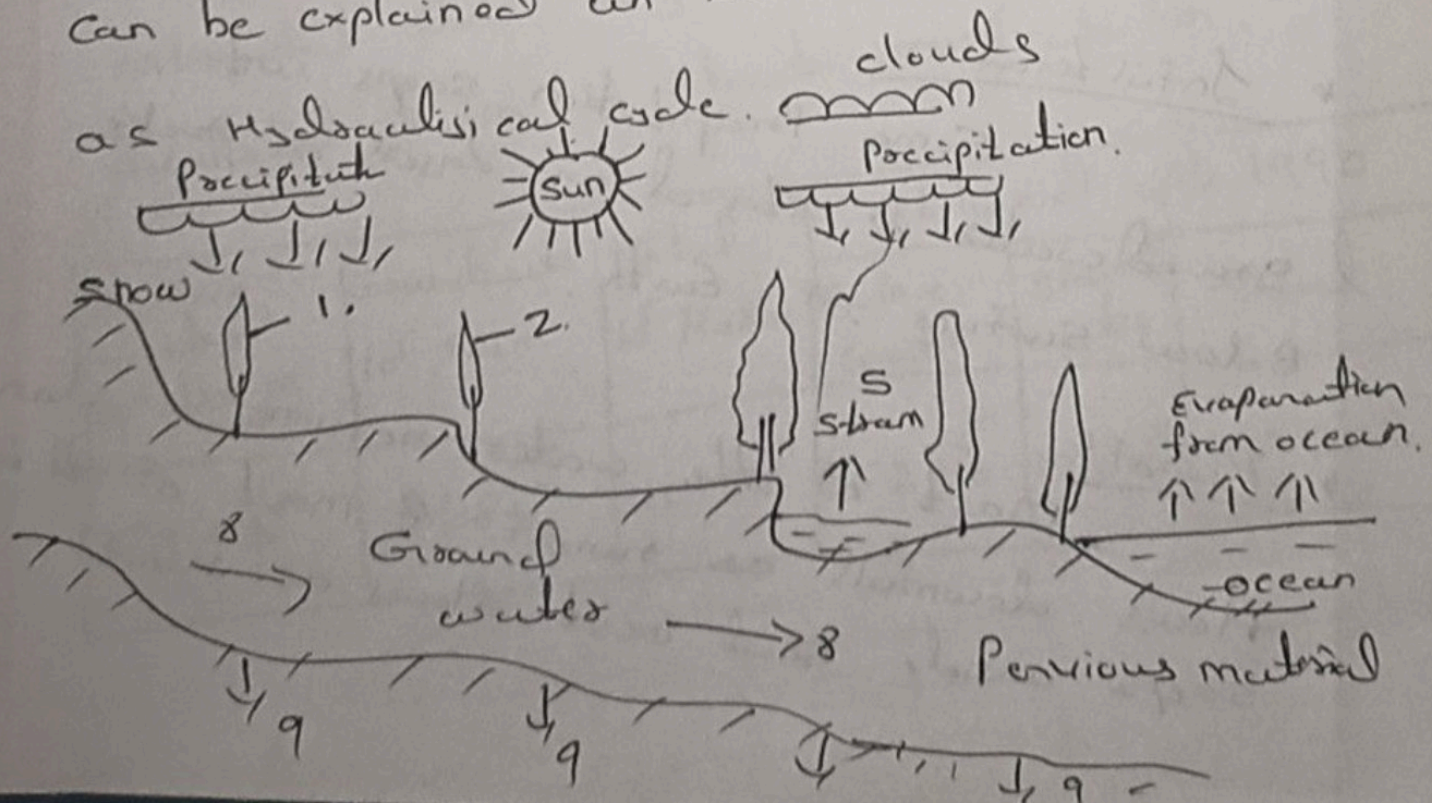 Can be explained
as Hydraulisical cycle.
clouds
Precipitation.
Precipitat
Sun
Snow
1.
2.
S
Stram
Evaparation
from ocean.
8
Ground
water
8
ocean
Pervious material
9
9
9